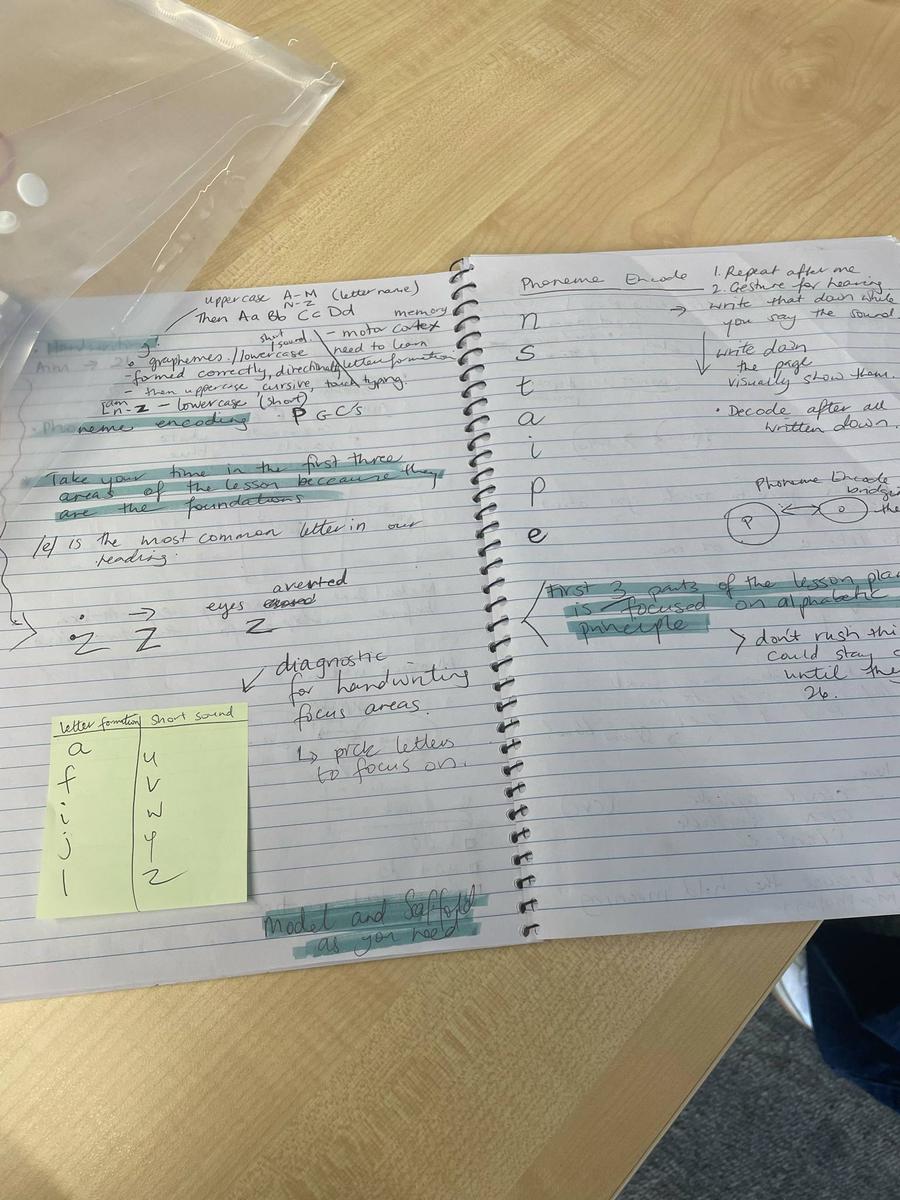 uppercase A-M (letter name)
N-Z
Then Aa Bb Cc Dd
memory
- motor cortex
need to learn
letter formation
Handwriting
short
/sound
Aim → 26 graphemes / lowercase
- formed correctly, directionally
- then uppercase cursive, touch typing.
n-z - lowercase (short)
Phoneme encoding
P GC's
* Take your time in the first three
areas of the lesson beccause they
are the foundations
/e/ is the most common letter in our
reading.
averted
eyes
z
z
z
diagnostic
for handwriting
focus areas.
↳ pick letters
to focus on.
letter formation short sound
a u
f v
i w
j y
l z
Model and Saffold
as you need
Phoneme Encode
n
s
t
a
i
p
e
1. Repeat after me
2. Gesture for hearing
→ write that down while
you say the sound.
write down
the page
visually show them.
• Decode after all
written down.
Phoneme Encode
P
O
the
first 3 parts of the lesson plan
is focused on alphabetic
principle
> don't rush thi
could stay
until the
26.